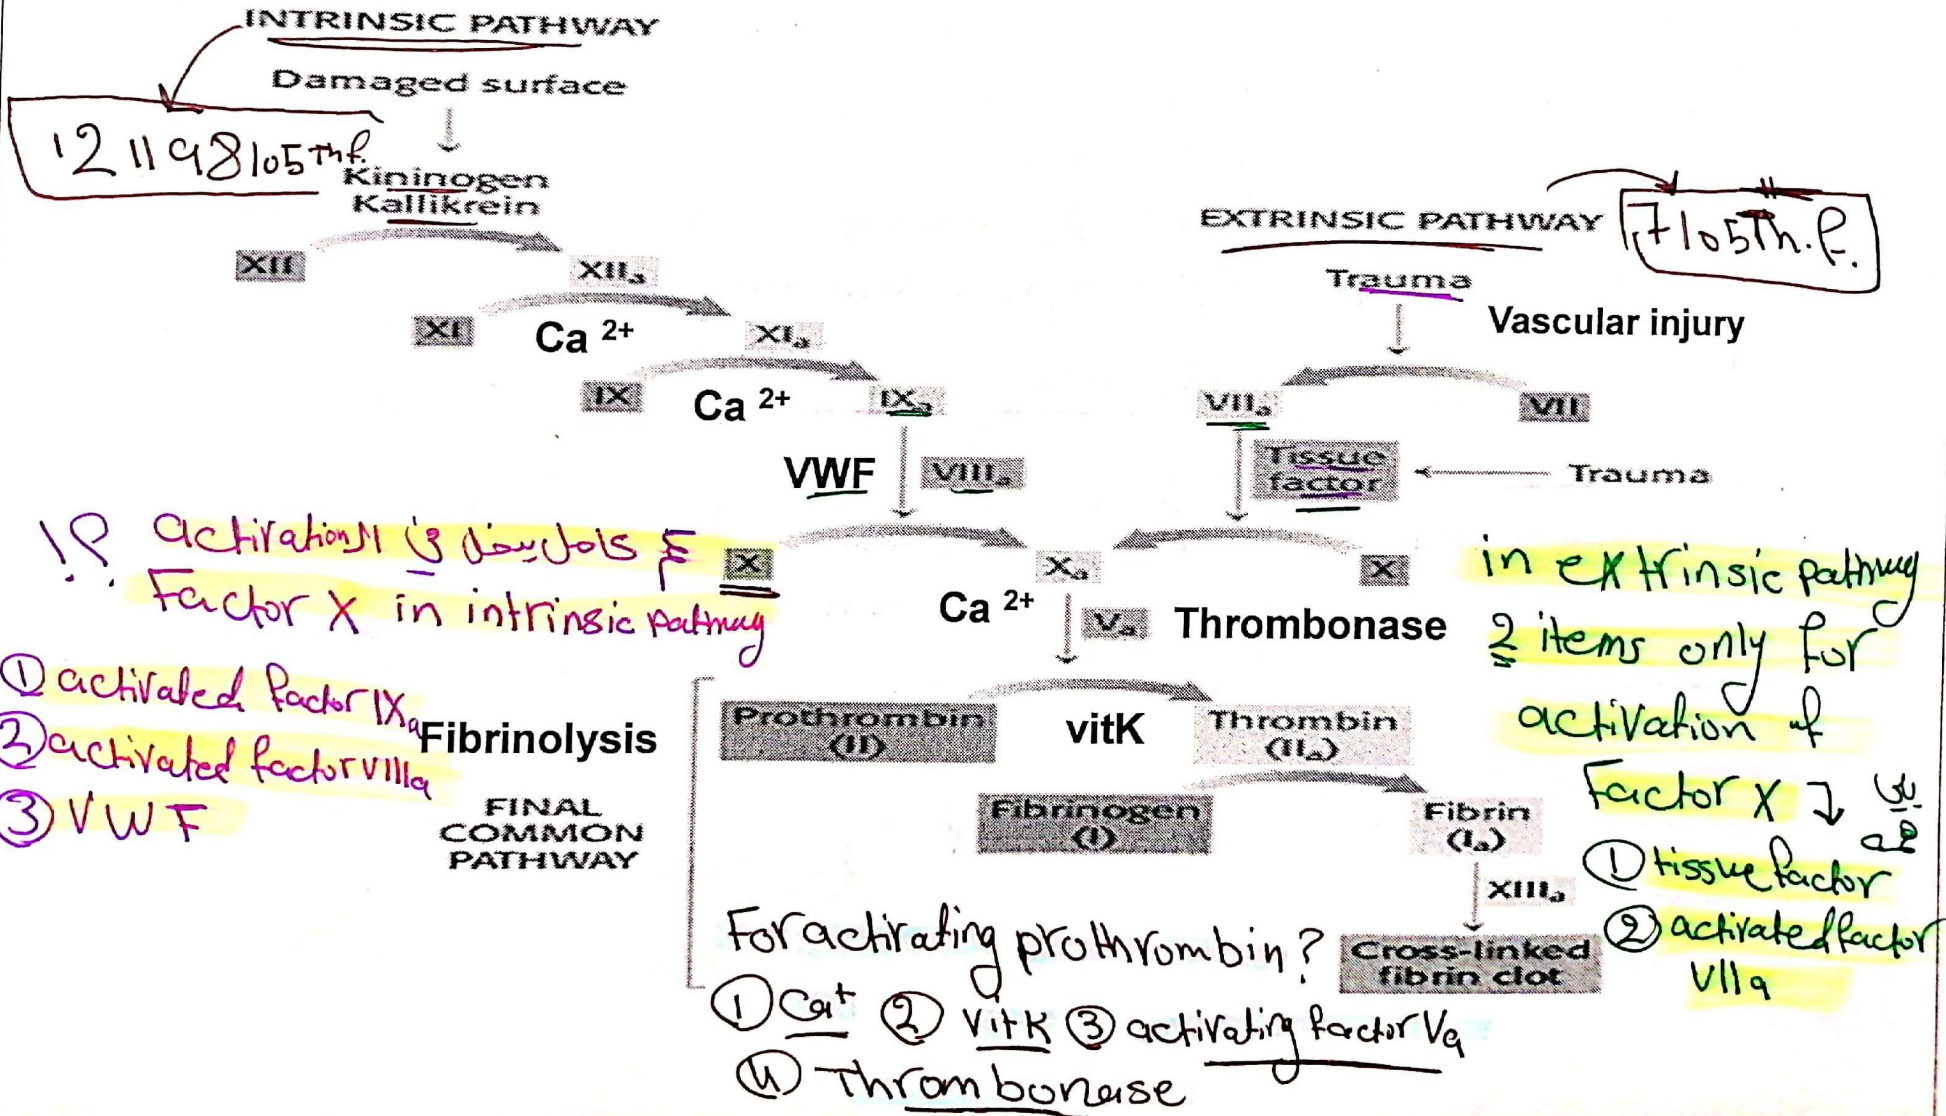 INTRINSIC PATHWAY
Damaged surface
12 11 9 8 10 5 Th f.
Kininogen
Kallikrein
XII
XIIa
XI
Ca 2+
XIa
IX
Ca 2+
IXa
VWF
VIIIa
EXTRINSIC PATHWAY
7 10 5 Th. f.
Trauma
Vascular injury
VIIa
VII
Tissue
factor
Trauma
X
Xa
X
Ca 2+
Va
Thrombonase
!؟ كم عامل بيدخل في الactivation
Factor X in intrinsic pathway
① activated factor IXa
② activated factor VIIIa
③ VWF
in extrinsic pathway
2 items only for
activation of
Factor X
① tissue factor
② activated factor
VIIa
Fibrinolysis
FINAL
COMMON
PATHWAY
Prothrombin
(II)
vitK
Thrombin
(IIa)
Fibrinogen
(I)
Fibrin
(Ia)
XIIIa
Cross-linked
fibrin clot
For activating prothrombin?
① Ca+ ② vitK ③ activating factor Va
④ Thrombonase